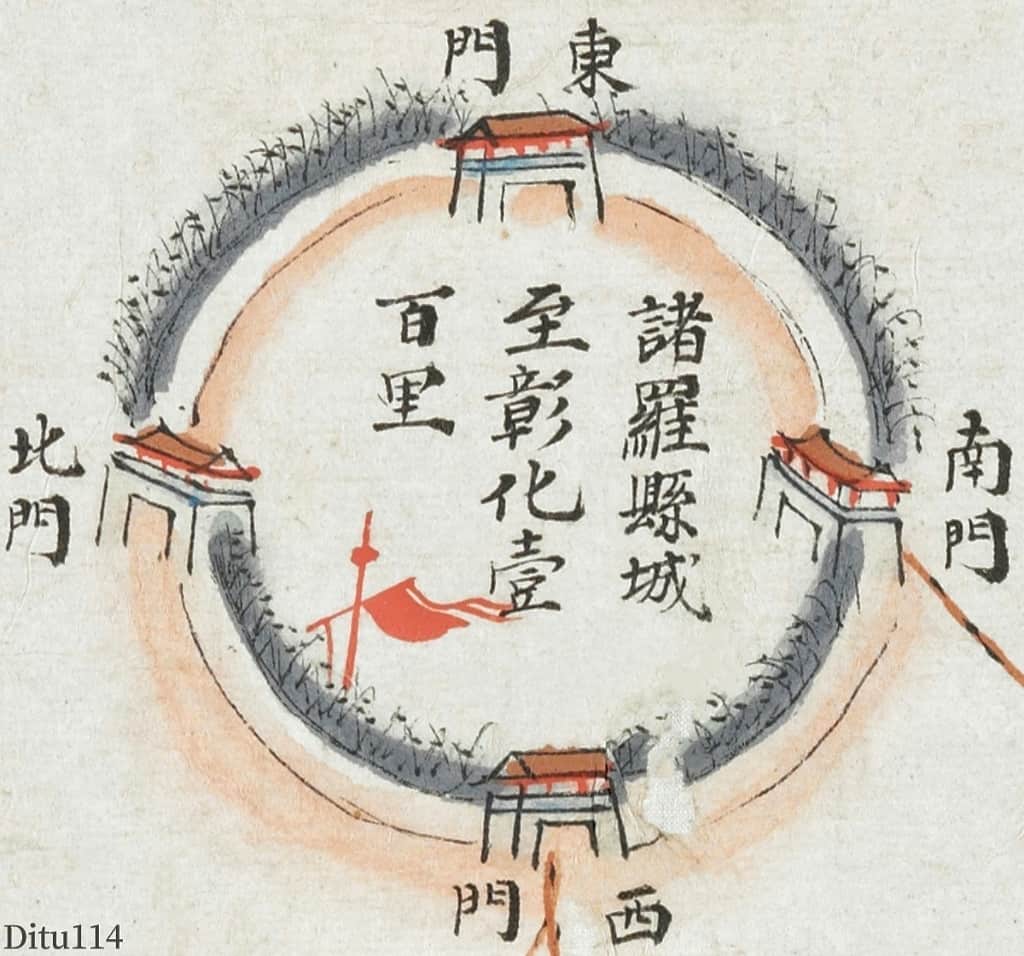 東門
諸羅縣城
至彰化壹
百里
北門
南門
西門
Ditu114